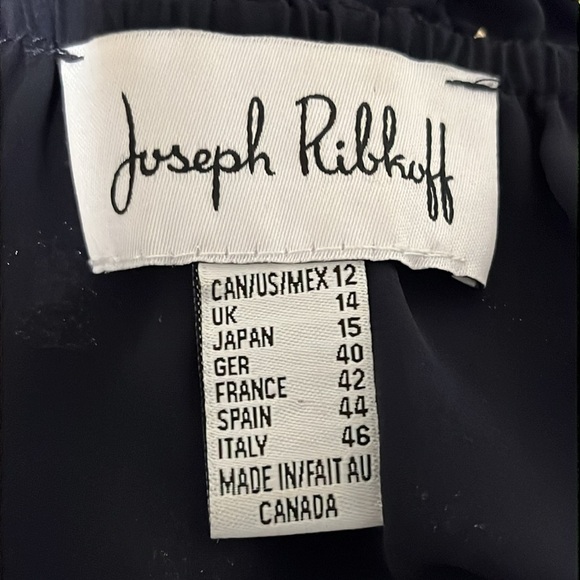 Joseph Ribkoff
CAN/US/MEX 12
UK 14
JAPAN 15
GER 40
FRANCE 42
SPAIN 44
ITALY 46
MADE IN/FAIT AU
CANADA